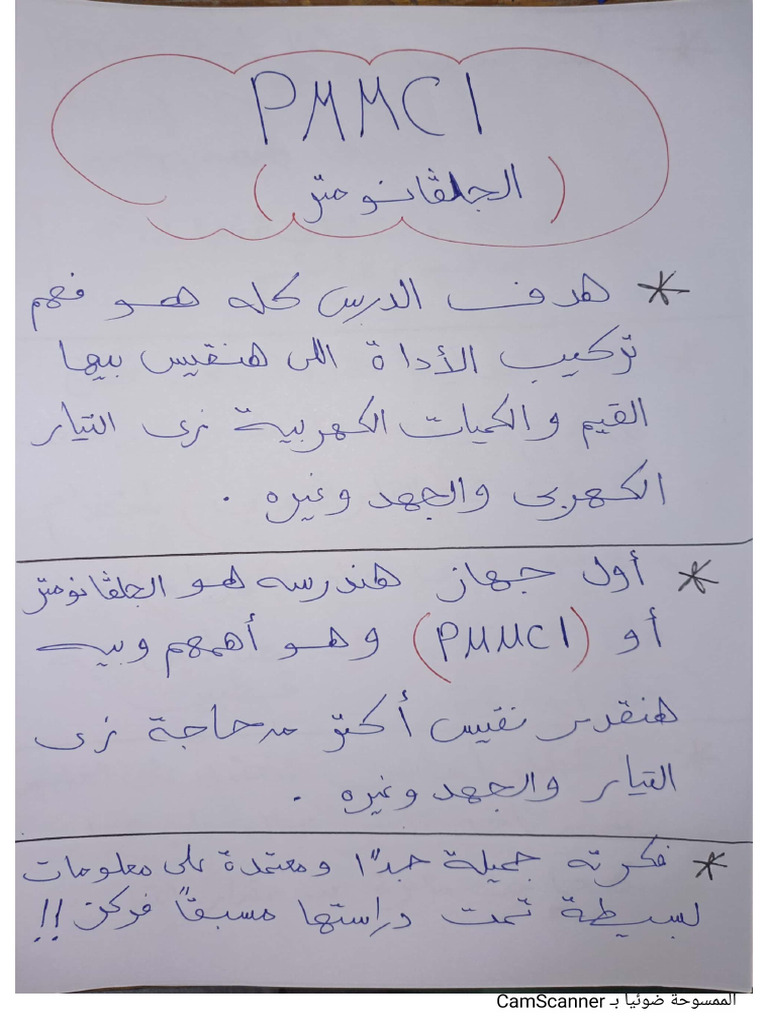 PMMCI
( الجلڤانومتر )
* هدف الدرس كله هو فهم
تركيب الأداة اللى هنقيس بيها
القيم والكميات الكهربية زى التيار
الكهربى والجهد وغيره .
* أول جهاز هندرسه هو الجلڤانومتر
أو (PMMCI) وهو أهمهم وبيه
هنقدر نقيس أكتر من حاجة زى
التيار والجهد وغيره .
* فكرته جميلة جدًا ومعتمدة على معلومات
بسيطة تمت دراستها مسبقًا فركز !!
الممسوحة ضوئيا بـ CamScanner